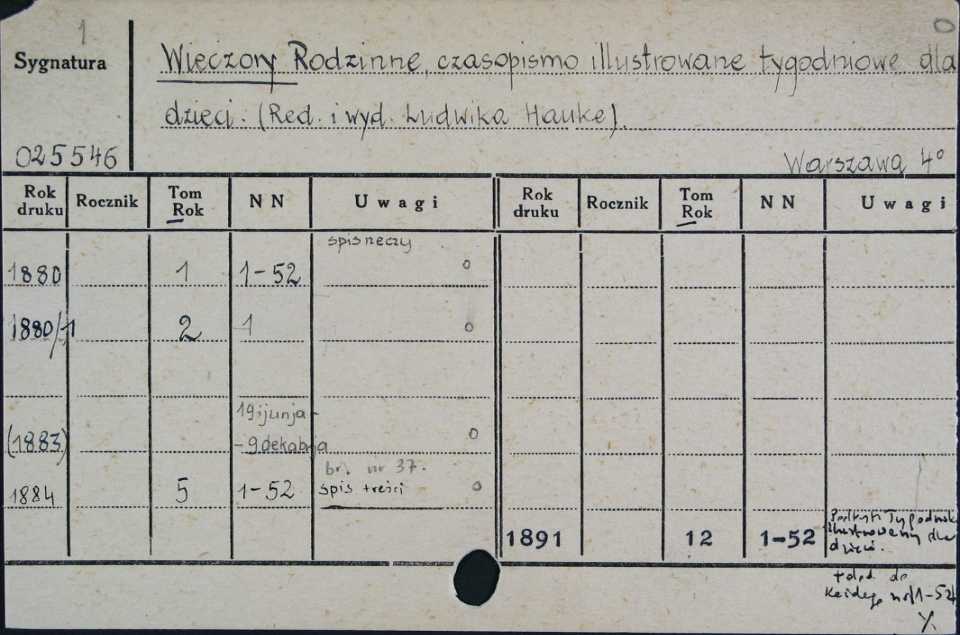 1
Sygnatura
Wieczory Rodzinne, czasopismo illustrowane tygodniowe dla
dzieci. (Red. i wyd. Ludwika Hauke).
025546
Warszawa 4°
Rok druku Rocznik Tom Rok NN Uwagi Rok druku Rocznik Tom Rok NN Uwagi
spis rzeczy
1880 1 1-52 o
1880/1 2 1 o
19 ijunja -
(1883) - 9 dekabrja o
br. nr 37.
1884 5 1-52 spis treści o
1891 12 1-52
dla
dzieci.
+ do
każdego nr/1-52/